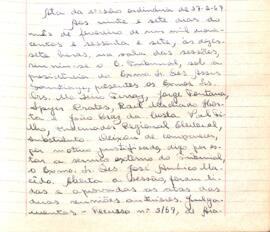 Ata da sessão ordinária de 27-2-69
Aos vinte e sete dias do
mês de fevereiro de mil nove-
centos e sessenta e sete, às dezes-
sete horas, na sala das sessões,
reuniu-se o Tribunal, sob a
presidência do Exmo. Sr. Des.
presentes os Exmos. Srs.
Drs. Jorge Fontana,
Prates, Raul Machado Hor-
ta e João Braz da Costa Val Fi-
lho, Procurador Regional Eleitoral,
substituto. Deixou de comparecer,
por motivo justificado, digo por es-
tar a serviço externo do Tribunal,
o Exmo. Sr. Des. José Américo Ma-
cêdo. Aberta a sessão, foram li-
das e aprovadas as atas das
duas reuniões anteriores. Julga-
mentos - Recurso nº 3/69, de